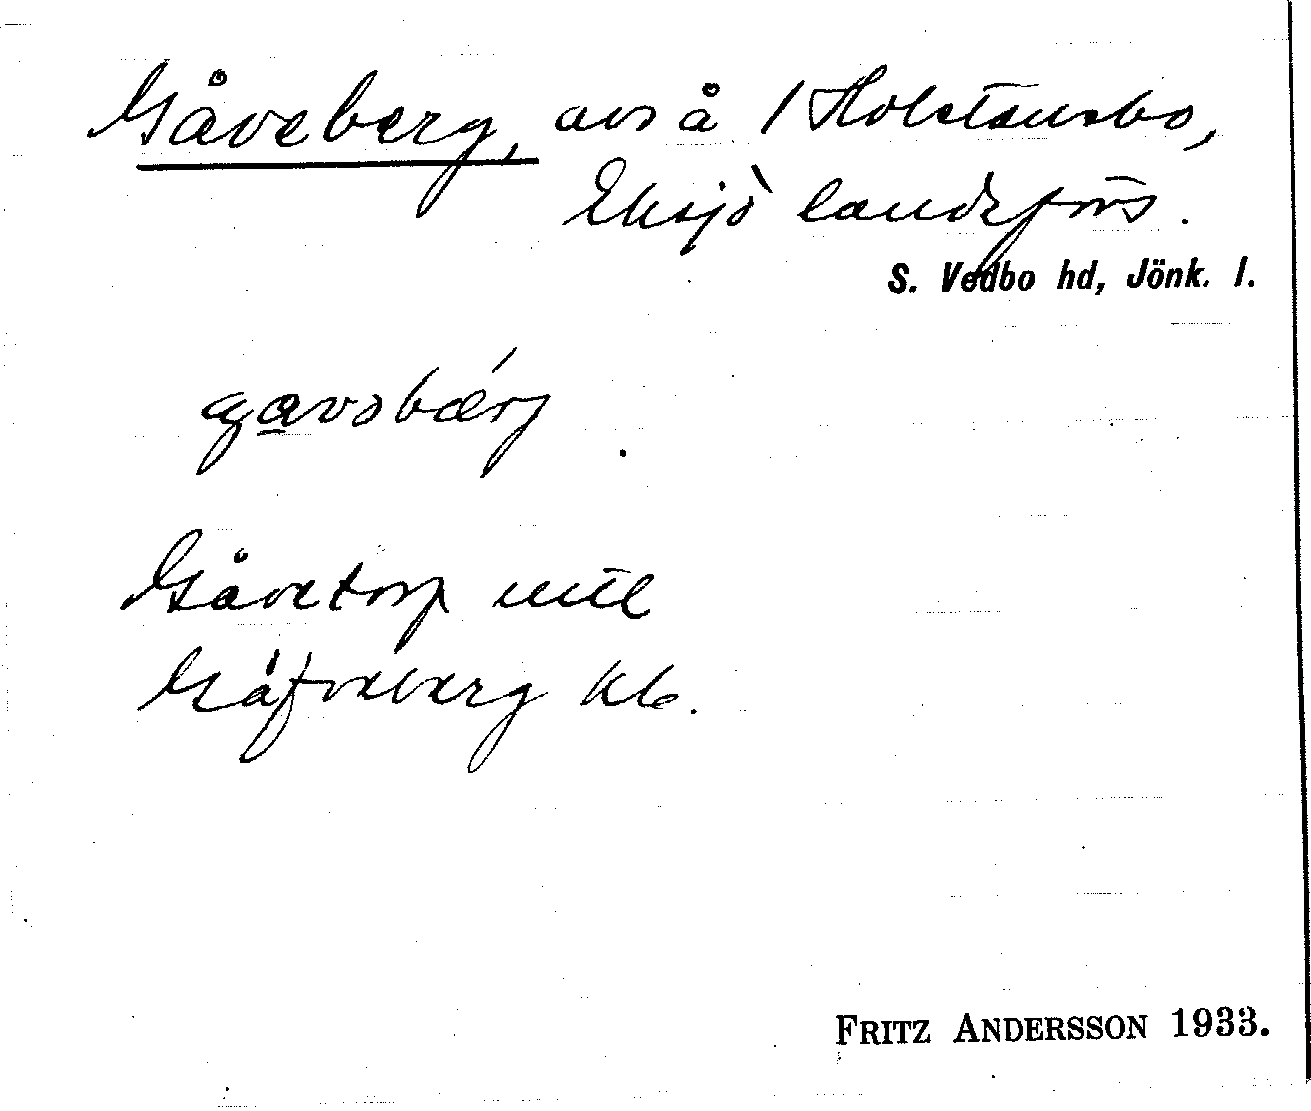 Gåveberg, avs å 1 Holstensbo,
Eksjö landsförs.
S. Vedbo hd, Jönk. l.
gavəbærj
Gåvetorp mtl
Gåfveberg kb.
FRITZ ANDERSSON 1933.